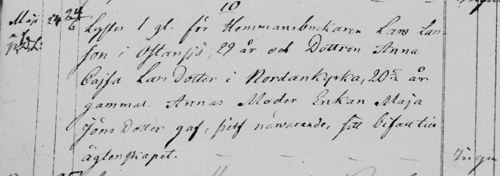 10
Maji 24 24/6 Lystes 1 gl. för Hemmansbrukaren Lars Lars
son i Ostansjö, 29 år och Dottren Anna
Cajsa Lars Dotter i Nordankyrka, 20 år
gammal. Annas Moder Enkan Maja
Jöns Dotter gaf, sjelf närvarande, sitt bifall till
ägtenskapet.